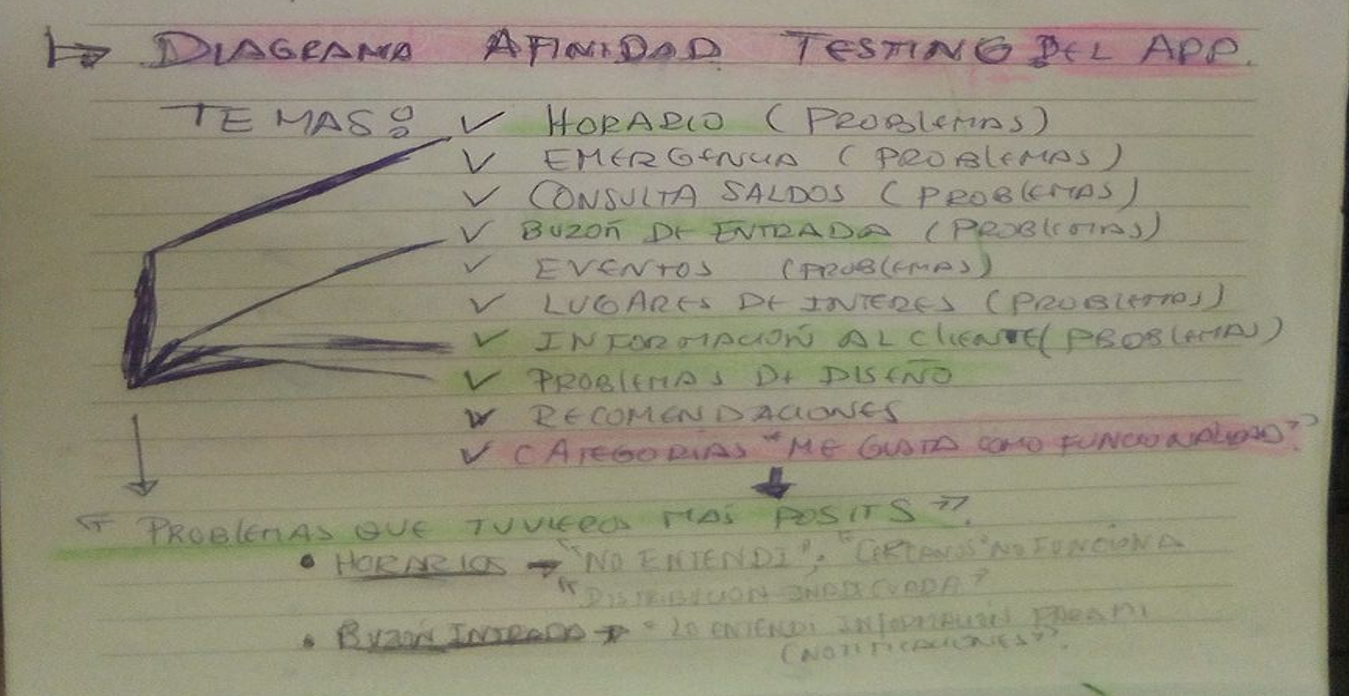 DIAGRAMA AFINIDAD TESTING DEL APP.
TEMAS: ✓ HORARIO (PROBLEMAS)
✓ EMERGENCIA (PROBLEMAS)
✓ CONSULTA SALDOS (PROBLEMAS)
✓ BUZON DE ENTRADA (PROBLEMAS)
✓ EVENTOS (PROBLEMAS)
✓ LUGARES DE INTERES (PROBLEMAS)
✓ INFORMACION AL CLIENTE (PROBLEMAS)
✓ PROBLEMAS DE DISEÑO
✓ RECOMENDACIONES
✓ CATEGORIAS "ME GUSTA COMO FUNCIONALIDAD"
"PROBLEMAS QUE TUVIERON MAS POSITS".
• HORARIOS → "NO ENTENDI", "CERCANOS" NO FUNCIONA
"DISTRIBUCION INADECUADA"
• BUZON ENTRADA → "NO ENTENDI INFORMACION PARA MI
(NOTIFICACIONES)".